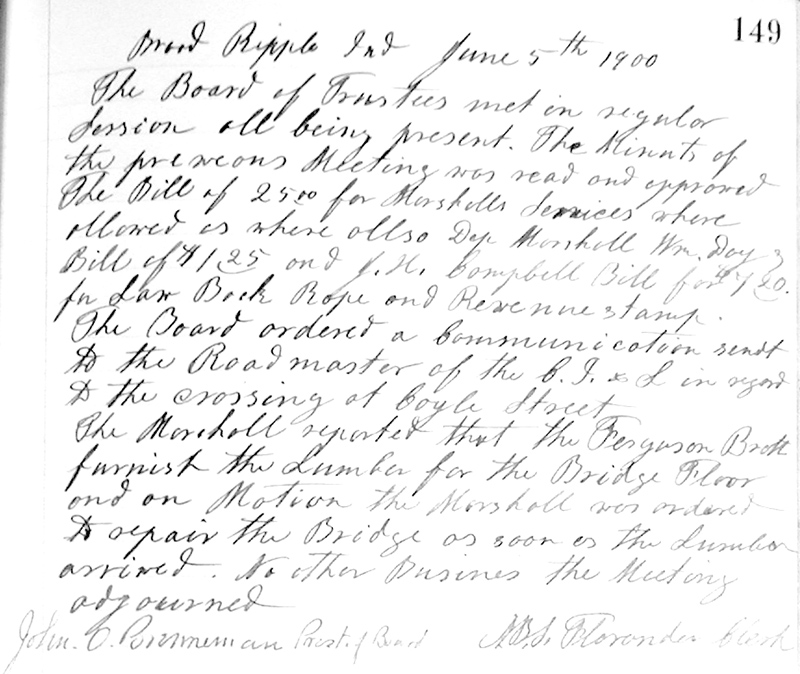 149
Broad Ripple Ind June 5th 1900
The Board of Trustees met in regular
Session all being present. The Minuts of
the preveous Meeting was read and approved
The Bill of 25.00 for Marshalls Services where
allowed as where allso Dep Marshall Wm. Day's
Bill of $1.25 and J. H. Campbell Bill for $
for Law Book Rope and Revenue stamp.
The Board ordered a Communication sendt
to the Roadmaster of the C. I. & L in regard
to the crossing at Coyle Street
The Marshall reported that the Ferguson Broth
furnish the Lumber for the Bridge Floor
and on Motion the Marshall was ordered
to repair the Bridge as soon as the Lumber
arrived. No other Busines the Meeting
adjourned
John. O. Prest. of Board Clerk